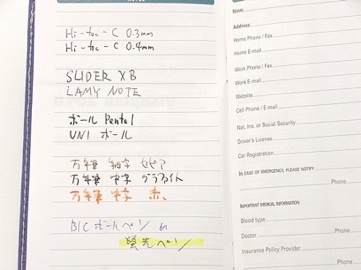 Hi-tec-C 0.3mm
Hi-tec-C 0.4mm
SLIDER XB
LAMY NOTE
ボール Pentel
UNI ボール
万年筆 細字
万年筆 中字 グラファイト
万年筆 中字 赤、
BICボールペン
蛍光ペン
Name
Address
Home Phone / Fax
Home E-mail
Work Phone / Fax
Work E-mail
Website
Cell Phone / E-mail
Nat. Ins. or Social Security
Driver's License
Car Registration
IN CASE OF EMERGENCY, PLEASE NOTIFY
Phone
IMPORTANT MEDICAL INFORMATION
Blood type
Doctor
Phone
Insurance Policy Provider